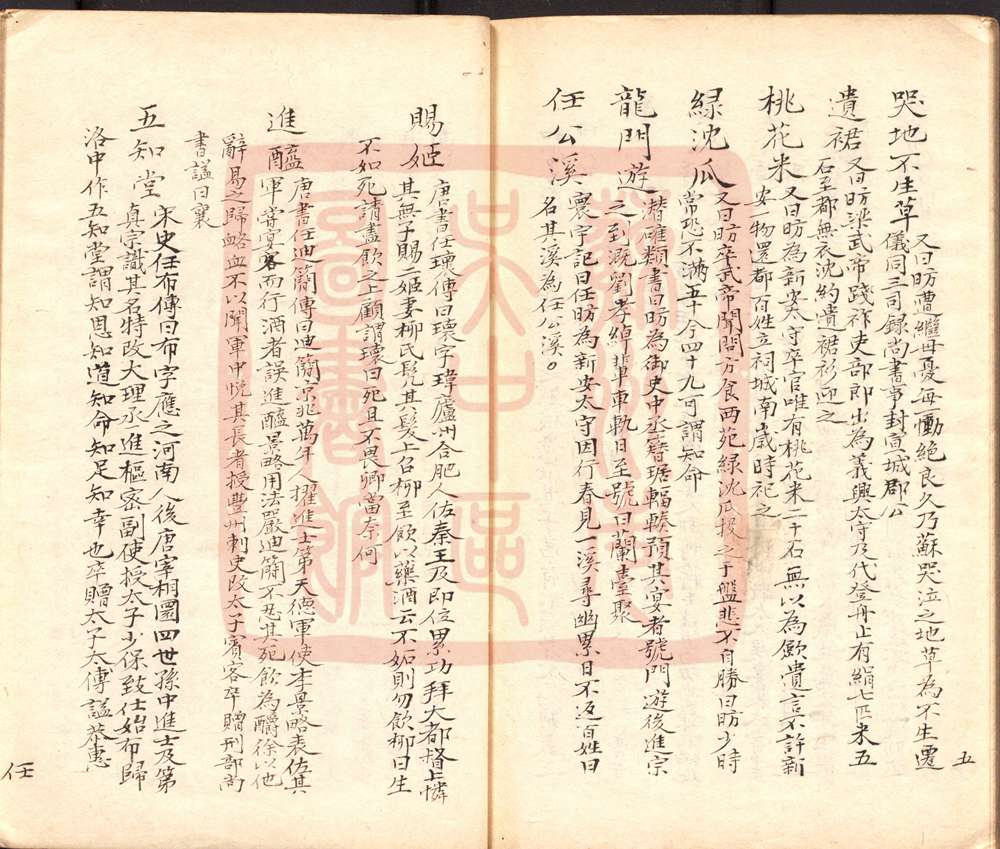 哭地不生草
又曰昉遭繼母憂每慟絕良久乃蘇哭泣之地草為不生遷
儀同三司錄尚書事封宣城郡公
五
遺裙
又曰昉梁武帝踐祚吏部郎出為義興太守乃代登舟止有絹七匹米五
石至都無衣沈約遺裙衫迎之
桃花米
又曰昉為新安守卒官唯有桃花米二十石無以為歛遺言不許新
安一物還都百姓立祠城南歲時祀之
綠沈瓜
又曰昉卒武帝聞問方食西苑綠沈瓜投之于盤悲不自勝曰昉少時
常恐不滿五十今四十九可謂知命
龍門遊
潛確類書曰昉為御史中丞簪琚輻輳預其宴者號門遊後進宗
之到溉劉孝綽輩車軌日至號曰蘭臺聚
任公溪
寰宇記曰任昉為新安太守因行春見一溪尋幽累日不返百姓曰
名其溪為任公溪。
賜姬
唐書任瓌傳曰瓌字瑋廬州合肥人佐秦王及即位累功拜大都督上憐
其無子賜二姬妻柳氏髡其髮上召柳至飲以藥酒云不妬則勿飲柳曰生
不如死請盡飲之上顧謂瓌曰死且不畏卿當奈何
進醯
唐書任迪簡傳曰迪簡京兆萬年人擢進士第天德軍使李景略表佐其
軍嘗宴客而行酒者誤進醯景略用法嚴迪簡不忍其死飲為釂徐以他
辭易之歸衉血不以聞軍中悅其長者授豐州刺史改太子賓客卒贈刑部尚
書謚曰襄
五知堂
宋史任布傳曰布字應之河南人後唐宰相圜四世孫中進士及第
真宗識其名特改大理丞進樞密副使授太子少保致仕始布歸
洛中作五知堂謂知恩知道知命知足知幸也卒贈太子太傅謚恭惠
任